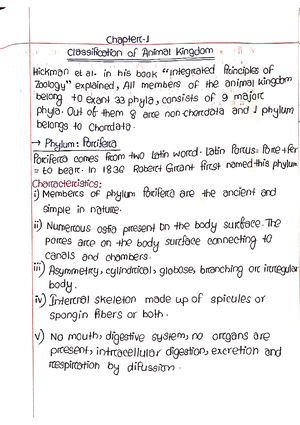 Chapter-1
Classification of Animal Kingdom
Hickman et al. in his book "Integrated Principles of
Zoology" explained, All members of the animal kingdom
belong to exant 33 phyla, consists of 9 major
phyla. Out of them 8 are non-chordata and 1 phylum
belongs to Chordata.
→ Phylum: Porifera
Porifera comes from two latin word. Latin Porus= Pore + fer
= to bear. In 1836 Robert Grant first named this phylum
Characteristics:
i) Members of phylum Porifera are the ancient and
simple in nature.
ii) Numerous ostia present on the body surface. The
pores are on the body surface connecting to
canals and chambers.
iii) Asymmetry, cylindrical, globose, branching or irregular
body.
iv) Internal skeleton made up of spicules or
spongin fibers or both.
v) No mouth, digestive system, no organs are
present, intracellular digestion, excretion and
respiration by difussion.